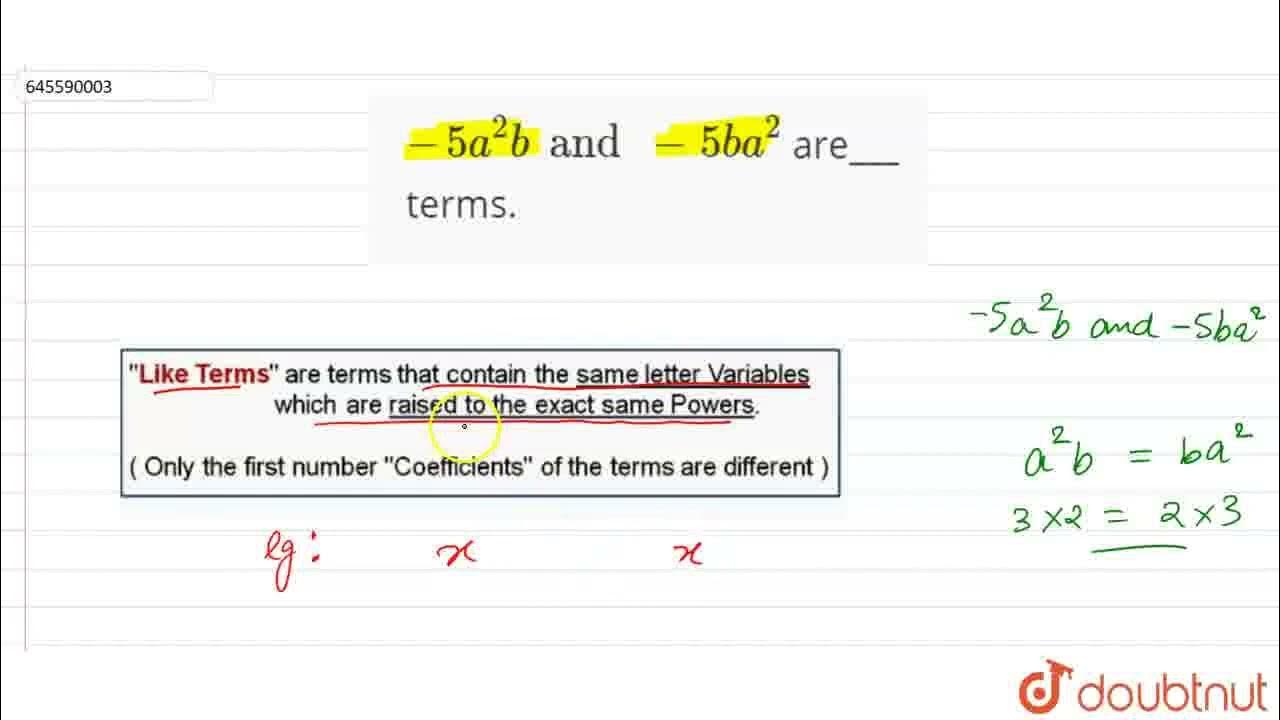 645590003
−5a²b and −5ba² are___
terms.
-5a²b and -5ba²
"Like Terms" are terms that contain the same letter Variables
which are raised to the exact same Powers.
( Only the first number "Coefficients" of the terms are different )
a²b = ba²
3×2 = 2×3
eg: x x
doubtnut